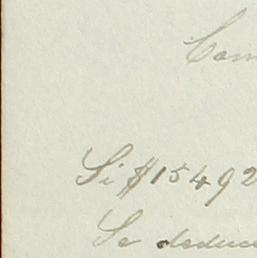 Com
Si $15492
Se deduce